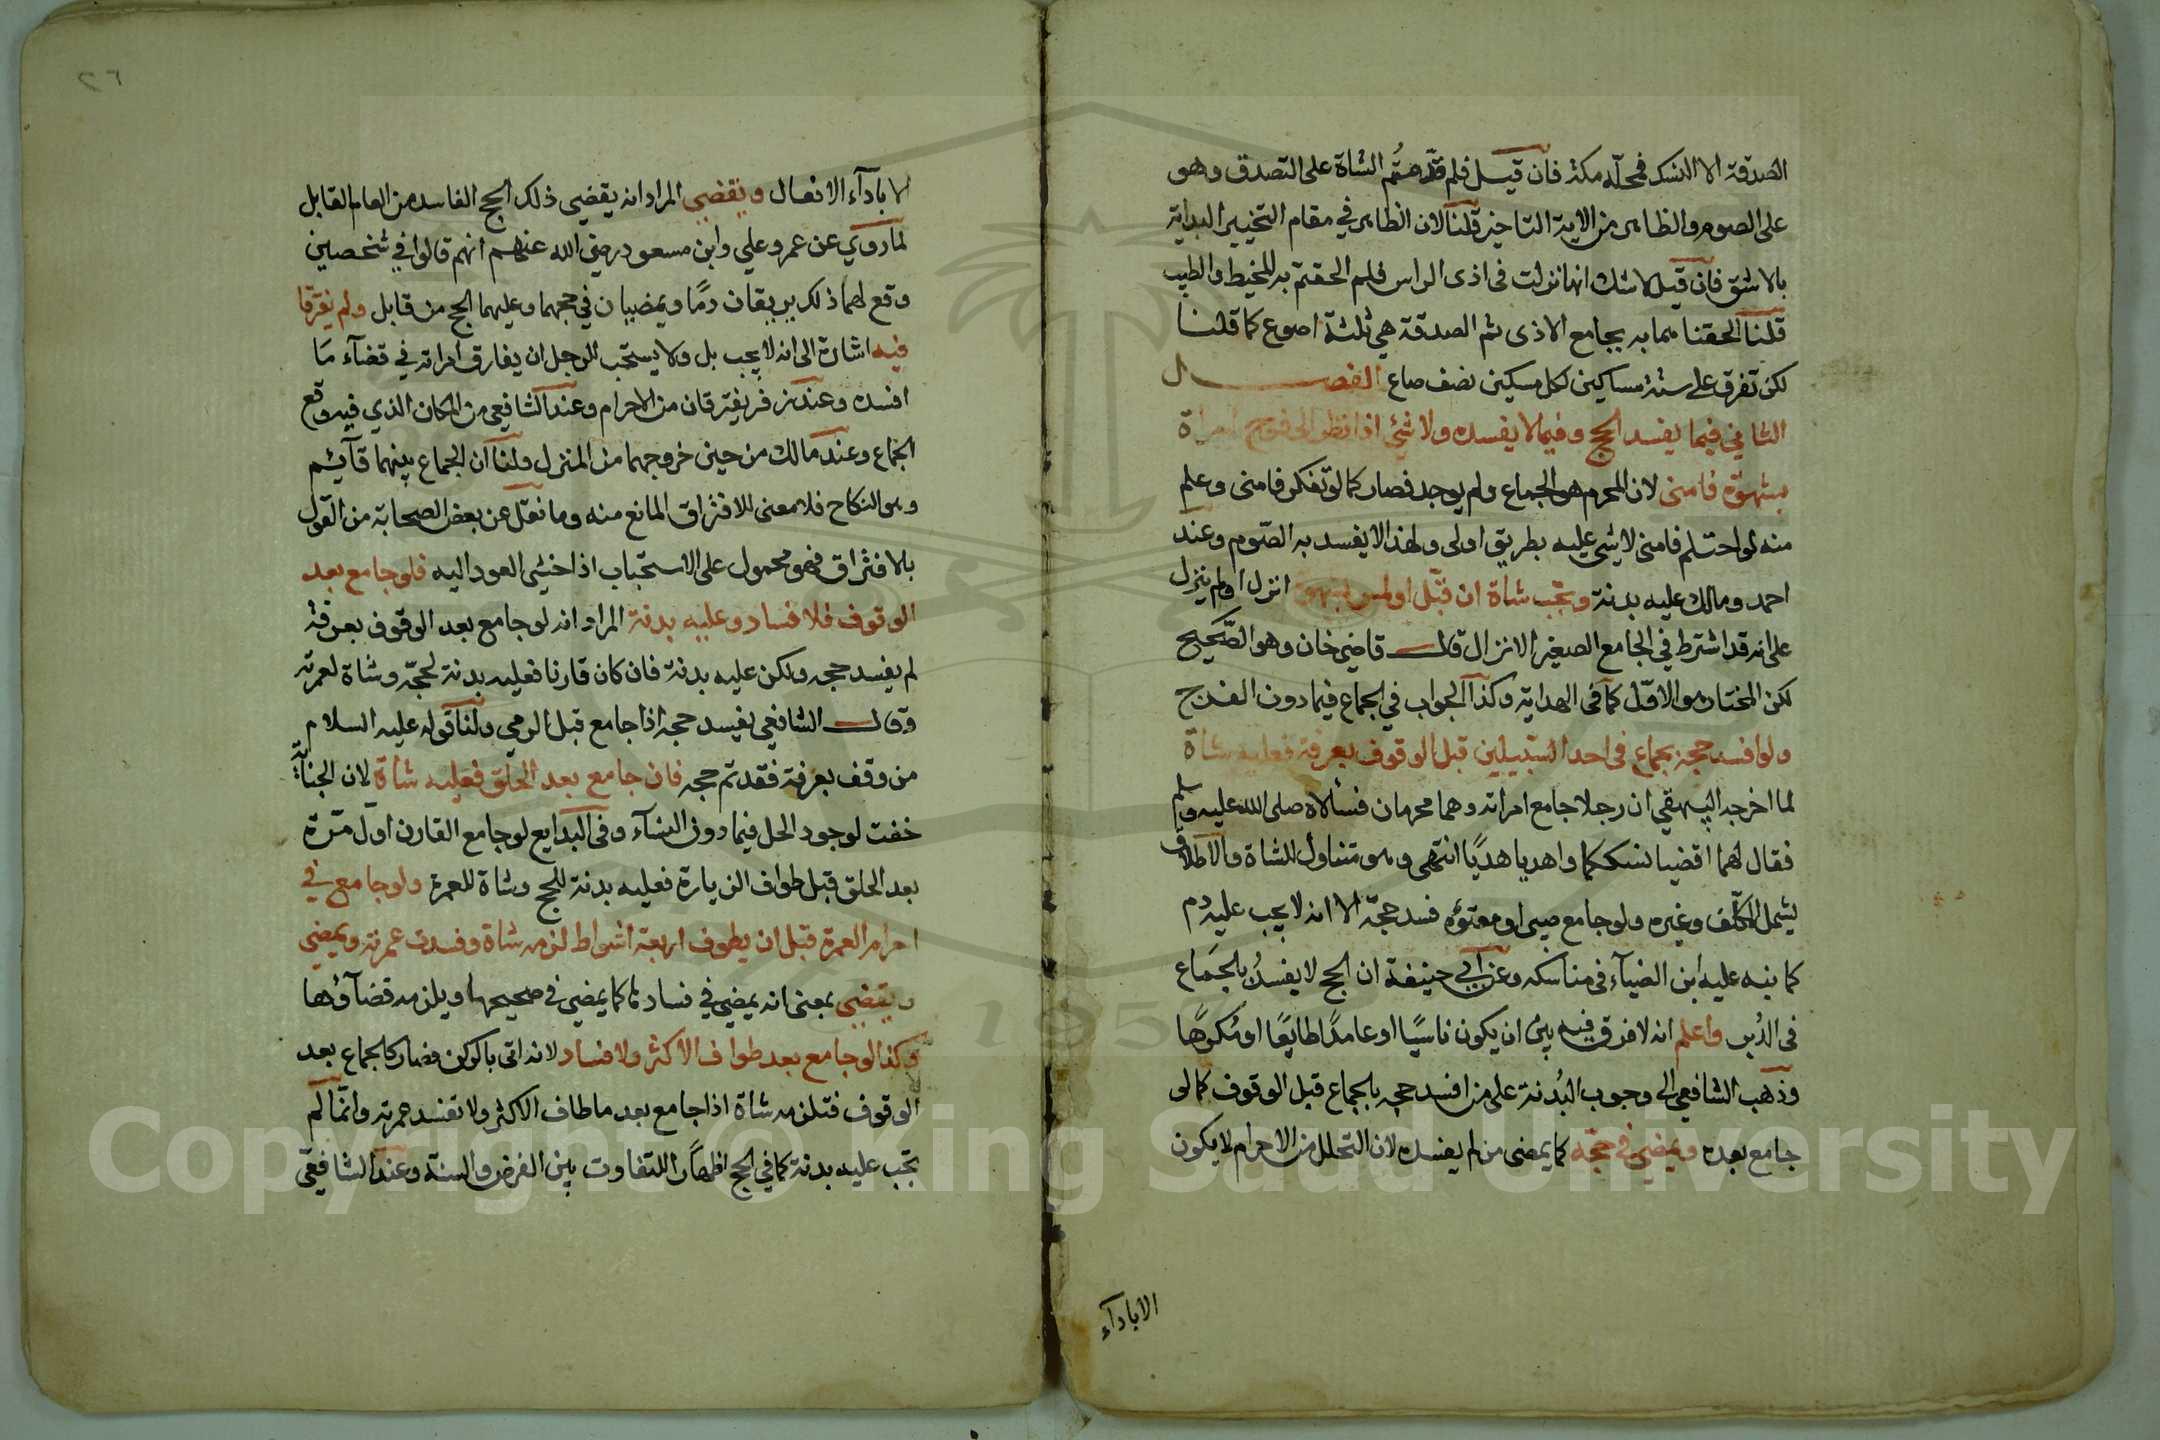 الصدقة الا النسك فمحله مكة فان قيل فلم قدمتم الشاة على التصدق وهو
على الصوم والظاهر من الاية التاخير قلنا لان الظاهر في مقام التخيير البداية
بالاشق فان قيل لا شك انها نزلت فى اذى الراس فلم الحقتم به المخيط والطيب
قلنا الحقنا هما به بجامع الاذى ثم الصدقة هي ثلثة اصوع كما قلنا
لكن تفرق على ستة مساكين لكل مسكين نصف صاع الفصل
الثاني فيما يفسد الحج وفيما لا يفسده ولا شئ اذا نظر الى فرج امراة
بشهوة فامنى لان المحرم هو الجماع ولم يوجد فصار كما لو تفكر فامنى وعلم
منه لو احتلم فامنى لا شئ عليه بطريق اولى ولهذا لا يفسد به الصوم وعند
احمد ومالك عليه بدنة وتجب شاة ان قبل او لمس بشهوة انزل او لم ينزل
على انه قد اشترط في الجامع الصغير الانزال قال قاضي خان وهو الصحيح
لكن المختار هو الاول كما فى الهداية وكذا الجواب في الجماع فيما دون الفرج
ولو افسد حجه بجماع فى احد السبيلين قبل الوقوف بعرفة فعليه شاة
لما اخرجه البيهقي ان رجلا جامع امراته وهما محرمان فسألاه صلى الله عليه وسلم
فقال لهما اقضيا نسككما واهديا هديا انتهى وهو متناول للشاة والاطلاق
يشمل المكلف وغيره ولو جامع صبى او معتوه فسد حجه الا انه لا يجب عليه دم
كما نبه عليه ابن الضياء فى مناسكه وعن ابي حنيفة ان الحج لا يفسد بالجماع
فى الدبر واعلم انه لا فرق فيه بين ان يكون ناسيا او عامدا طايعا او مكرها
وذهب الشافعي الى وجوب البدنة على من افسد حجه بالجماع قبل الوقوف كما لو
جامع بعده ويمضي في حجه كما يمضى من لم يفسده لان التحلل من الاحرام لا يكون
الا باداء
٢٦
الا باداء الافعال ويقضي المراد انه يقضى ذلك الحج الفاسد من العام القابل
لما روي عن عمر وعلي وابن مسعود رضي الله عنهم انهم قالوا في شخصين
وقع لهما ذلك يريقان دما ويمضيان في حجهما وعليهما الحج من قابل ولم يفترقا
فيه اشارة الى انه لا يجب بل ولا يستحب للرجل ان يفارق امراته في قضاء ما
افسده وعند زفر يفترقان من الاحرام وعند الشافعي من المكان الذي فيه وقع
الجماع وعند مالك من حين خروجهما من المنزل ولنا ان الجماع بينهما قائم
وهو النكاح فلا معنى للافتراق المانع منه وما نقل عن بعض الصحابة من القول
بالافتراق فهو محمول على الاستحباب اذا خشي العود اليه فلو جامع بعد
الوقوف فلا فساد وعليه بدنة المراد انه لو جامع بعد الوقوف بعرفة
لم يفسد حجه ولكن عليه بدنة فان كان قارنا فعليه بدنة لحجه وشاة لعمرته
وقال الشافعي يفسد حجه اذا جامع قبل الرمي ولنا قوله عليه السلام
من وقف بعرفة فقد تم حجه فان جامع بعد الحلق فعليه شاة لان الجناية
خفت لوجود الحل فيما دون النساء وفى البدايع لو جامع القارن اول مرة
بعد الحلق قبل طواف الزيارة فعليه بدنة للحج وشاة للعمرة ولو جامع في
احرام العمرة قبل ان يطوف اربعة اشواط لزمه شاة وفسدت عمرته ويمضي
ويقضي بمعنى انه يمضي في فسادها كما يمضي في صحيحها ويلزمه قضاؤها
وكذا لو جامع بعد طواف الاكثر ولا فساد لانه اتى بالركن فصار كالجماع بعد
الوقوف فتلزمه شاة اذا جامع بعد ما طاف الاكثر ولا تفسد عمرته وانما لم
تجب عليه بدنة كما في الحج اظهارا للتفاوت بين الفرض والسنة وعند الشافعي
Copyright © King Saud University
195